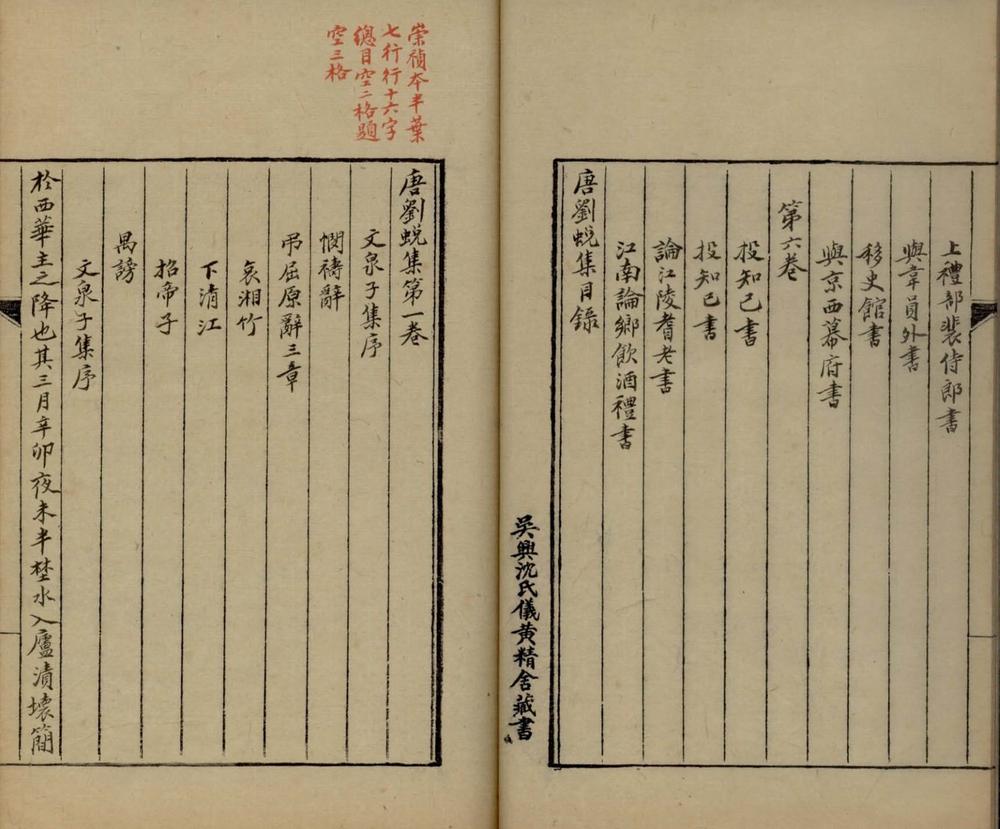 上禮部裴侍郎書
與韋員外書
移史館書
與京西幕府書
第六卷
投知己書
投知己書
論江陵耆老書
江南論鄉飲酒禮書
唐劉蛻集目錄
吳興沈氏儀黃精舍藏書
崇禎本半葉
七行行十六字
總目空二格題
空三格
唐劉蛻集第一卷
文泉子集序
憫禱辭
弔屈原辭三章
哀湘竹
下清江
招帝子
禹謗
文泉子集序
於西華主之降也其三月辛卯夜未半埜水入廬漬壞簡